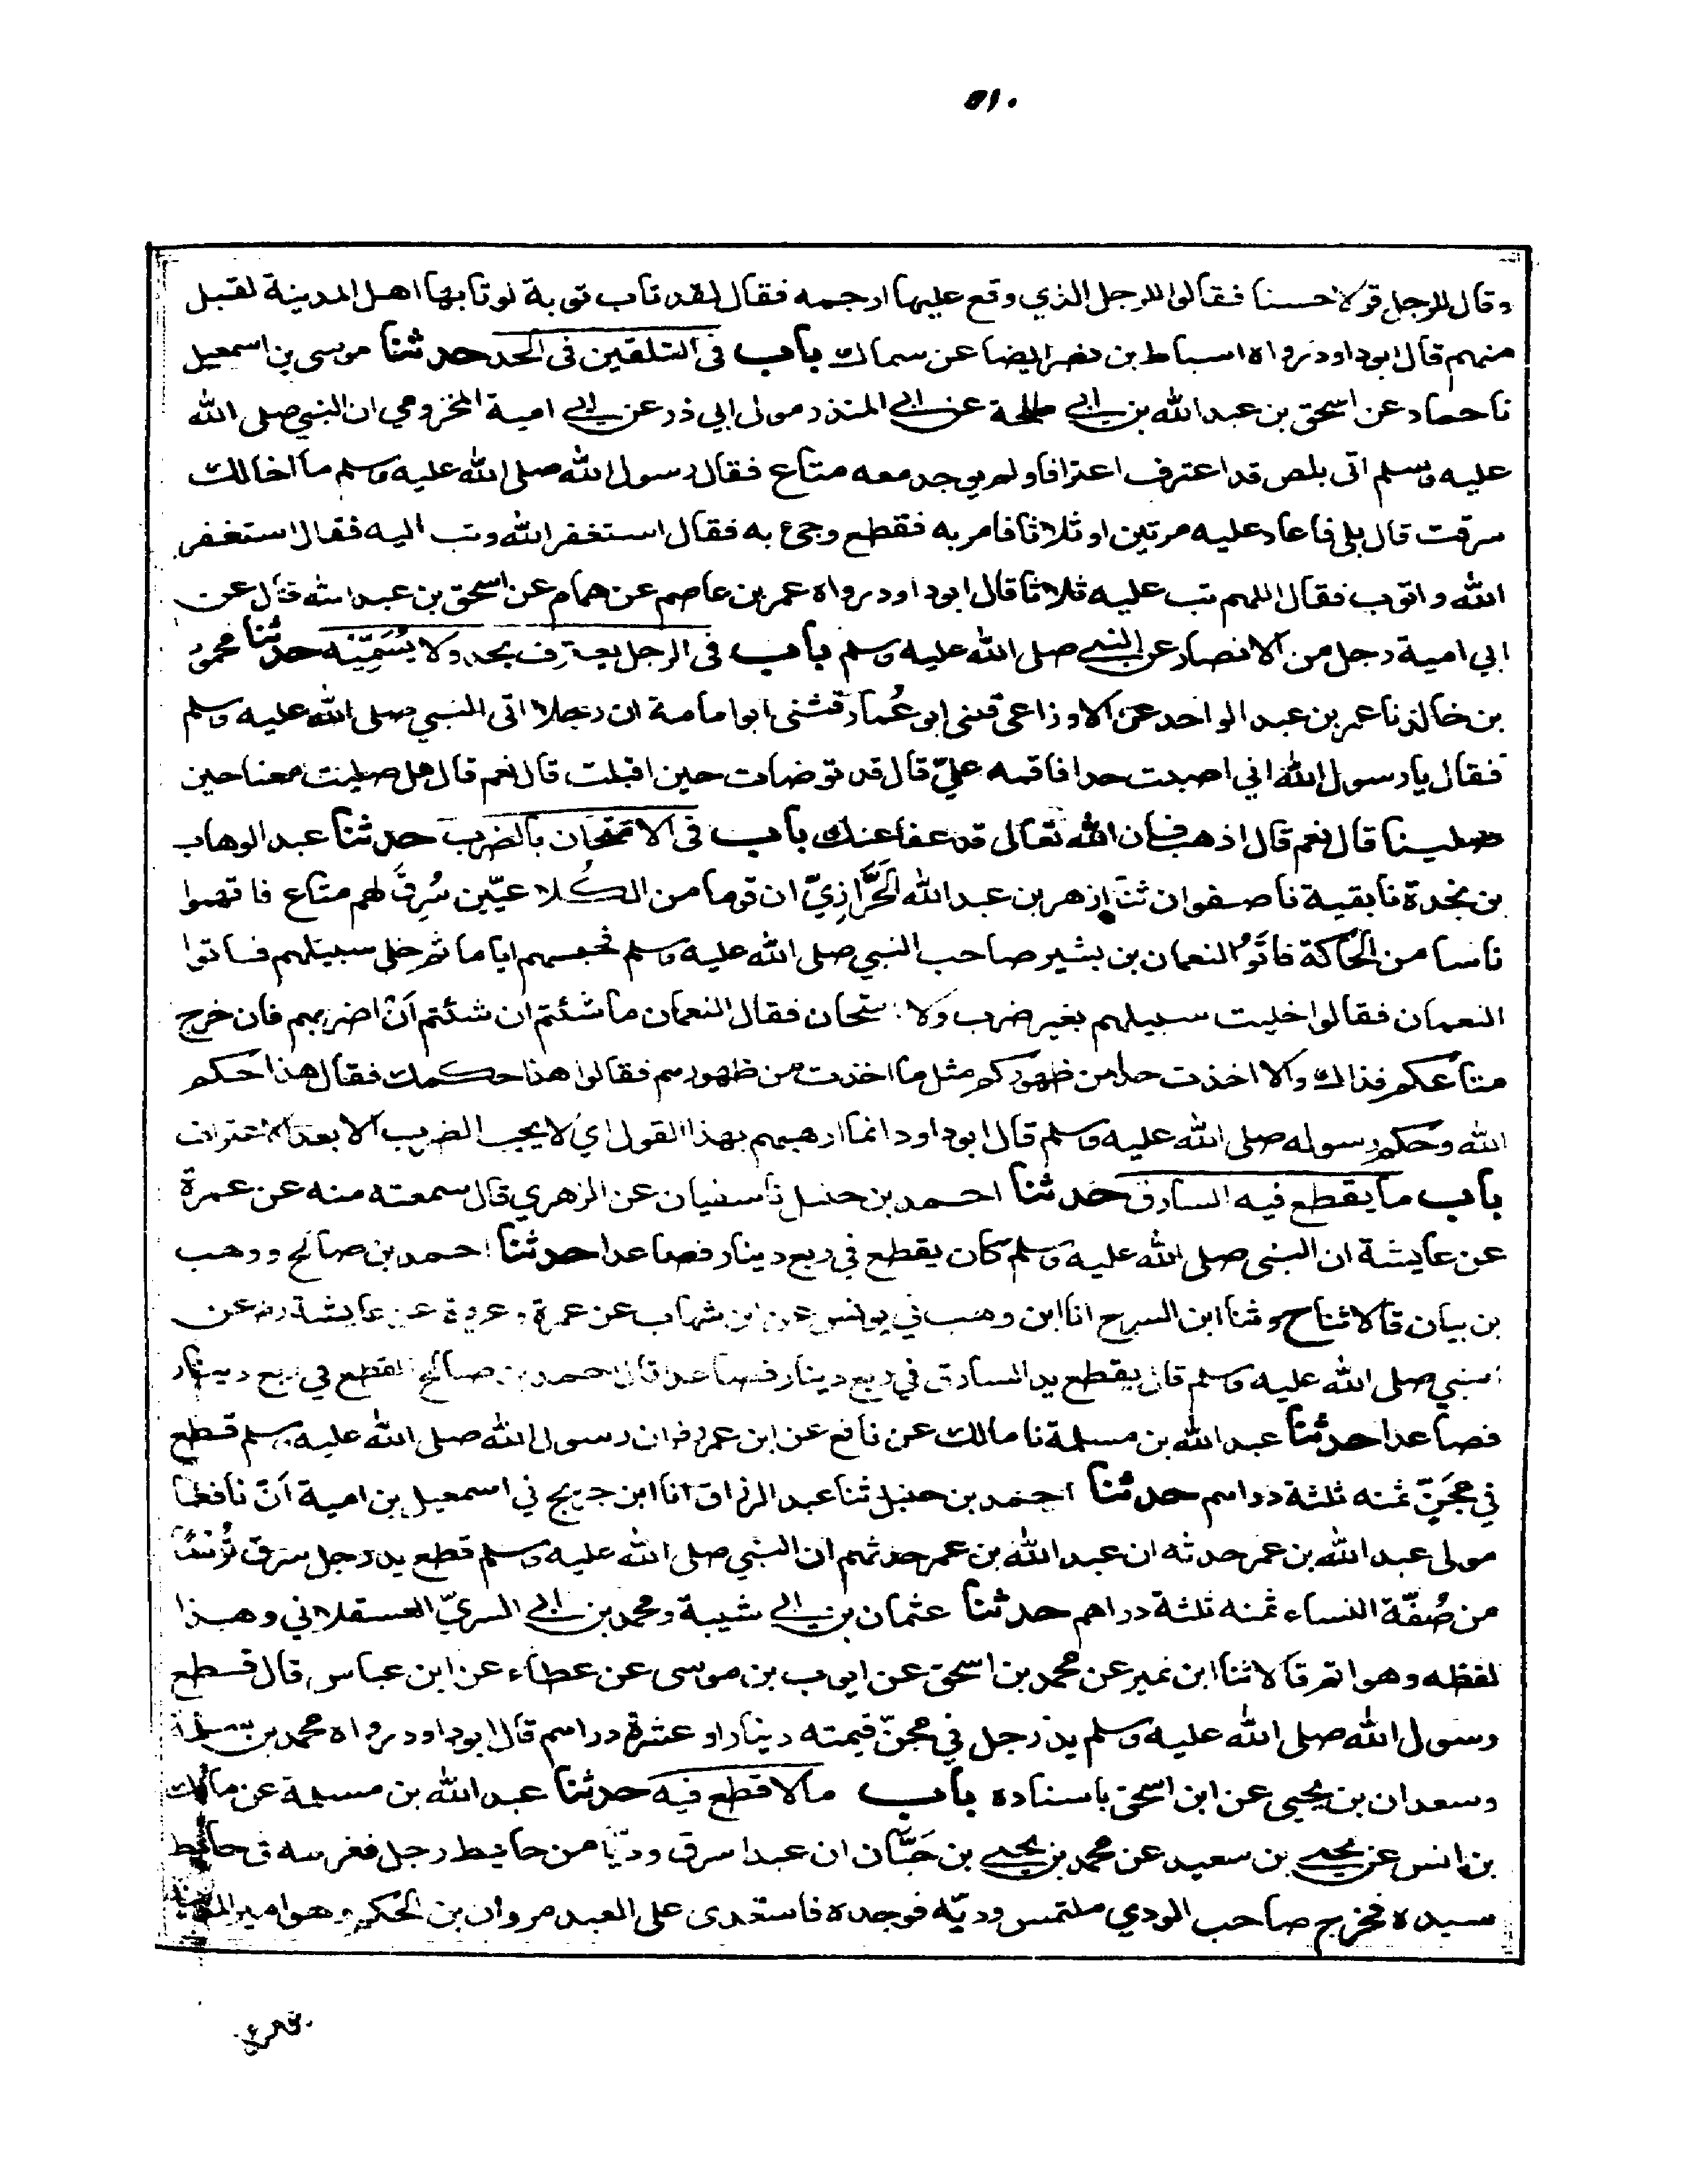 ٥١٠
وقال للرجل قولا حسنا فقالوا للرجل الذي وقع عليها ارجمه فقال لقد تاب توبة لو تابها اهل المدينة لقبل
منهم قال ابو داود رواه اسباط بن نصر ايضا عن سماك باب في التلقين في الحد حدثنا موسى بن اسمعيل
نا حماد عن اسحق بن عبد الله بن ابي طلحة عن ابي المنذر مولى ابي ذر عن ابي امية المخزومي ان النبي صلى الله
عليه وسلم اتى بلص قد اعترف اعترافا ولم يوجد معه متاع فقال رسول الله صلى الله عليه وسلم ما اخالك
سرقت قال بلى فاعاد عليه مرتين او ثلاثا فامر به فقطع وجئ به فقال استغفر الله وتب اليه فقال استغفر
الله واتوب فقال اللهم تب عليه ثلاثا قال ابو داود رواه عمر بن عاصم عن همام عن اسحق بن عبد الله قال عن
ابي امية رجل من الانصار عن النبي صلى الله عليه وسلم باب في الرجل يعترف بحد ولا يُسَمِّيْه حدثنا محمود
بن خالد نا عمر بن عبد الواحد عن الاوزاعي قثنى ابو عُمار قثنى ابو امامة ان رجلا اتى النبي صلى الله عليه وسلم
فقال يا رسول الله اني اصبت حدا فاقمه عليّ قال قد توضات حين اقبلت قال نعم قال هل صليت معنا حين
صلينا قال نعم قال اذهب فان الله تعالى قد عفا عنك باب في الامتحان بالضرب حدثنا عبد الوهاب
بن نجدة نا بقية نا صفوان ثنا ازهر بن عبد الله الحَرَّازِيّ ان قوما من الكُلاعيّين سُرِقَ لهم متاع فاتهموا
ناسا من الحَاكة فاتَوُا النعمان بن بشير صاحب النبي صلى الله عليه وسلم فحبسهم اياما ثم خلى سبيلهم فاتوا
النعمان فقالوا خليت سبيلهم بغير ضرب ولا امتحان فقال النعمان ما شئتم ان شئتم اَنْ اضربهم فان خرج
متاعكم فذاك والا اخذت من ظهوركم مثل ما اخذت من ظهورهم فقالوا هذا حكمك فقال هذا حكم
الله وحكم رسوله صلى الله عليه وسلم قال ابو داود انما ارهبهم بهذا القول اي لا يجب الضرب الا بعد الاعتراف
باب ما يقطع فيه السارق حدثنا احمد بن حنبل نا سفيان عن الزهري قال سمعته منه عن عمرة
عن عايشة ان النبي صلى الله عليه وسلم كان يقطع في ربع دينار فصاعدا حدثنا احمد بن صالح ووهب
بن بيان قالا ثنا ح وثنا ابن السرح انا ابن وهب ني يونس عن ابن شهاب عن عمرة وعروة عن عايشة رض عن
النبي صلى الله عليه وسلم قال يقطع يد السارق في ربع دينار فصاعدا قال احمد بن صالح القطع في ربع دينار
فصاعدا حدثنا عبد الله بن مسلمة نا مالك عن نافع عن ابن عمر ان رسول الله صلى الله عليه وسلم قطع
في مِجَنّ ثمنه ثلثة دراهم حدثنا احمد بن حنبل ثنا عبد الرزاق انا ابن جريج ني اسمعيل بن امية اَنّ نافعا
مولى عبد الله بن عمر حدثه ان عبد الله بن عمر حدثهم ان النبي صلى الله عليه وسلم قطع يد رجل سرق تُرْسًا
من صُفّة النساء ثمنه ثلثة دراهم حدثنا عثمان بن ابي شيبة ومحمد بن ابي السريّ العسقلاني وهذا
لفظه وهو اتم قالا ثنا ابن نمير عن محمد بن اسحق عن ايوب بن موسى عن عطاء عن ابن عباس قال قطع
رسول الله صلى الله عليه وسلم يد رجل في مجنّ قيمته دينار او عشرة دراهم قال ابو داود رواه محمد بن سلمة
وسعدان بن يحيى عن ابن اسحق باسناده باب ما لا قطع فيه حدثنا عبد الله بن مسلمة عن مالك
بن انس عن يحيى بن سعيد عن محمد بن يحيى بن حَبَّان ان عبدا سرق وديّا من حايط رجل فغرسه في حائط
سيده فخرج صاحب الودي ملتمس وديّه فوجده فاستعدى على العبد مروان بن الحكم وهو امير المدينة